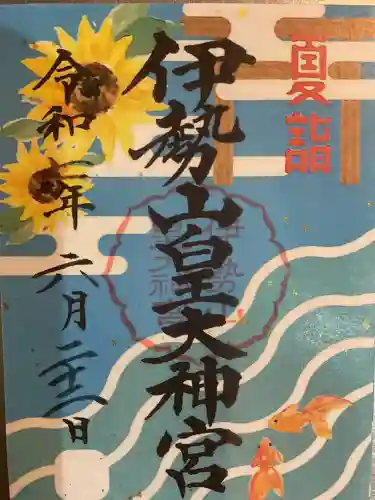 夏詣
伊勢山皇大神宮
令和二年六月二十一日